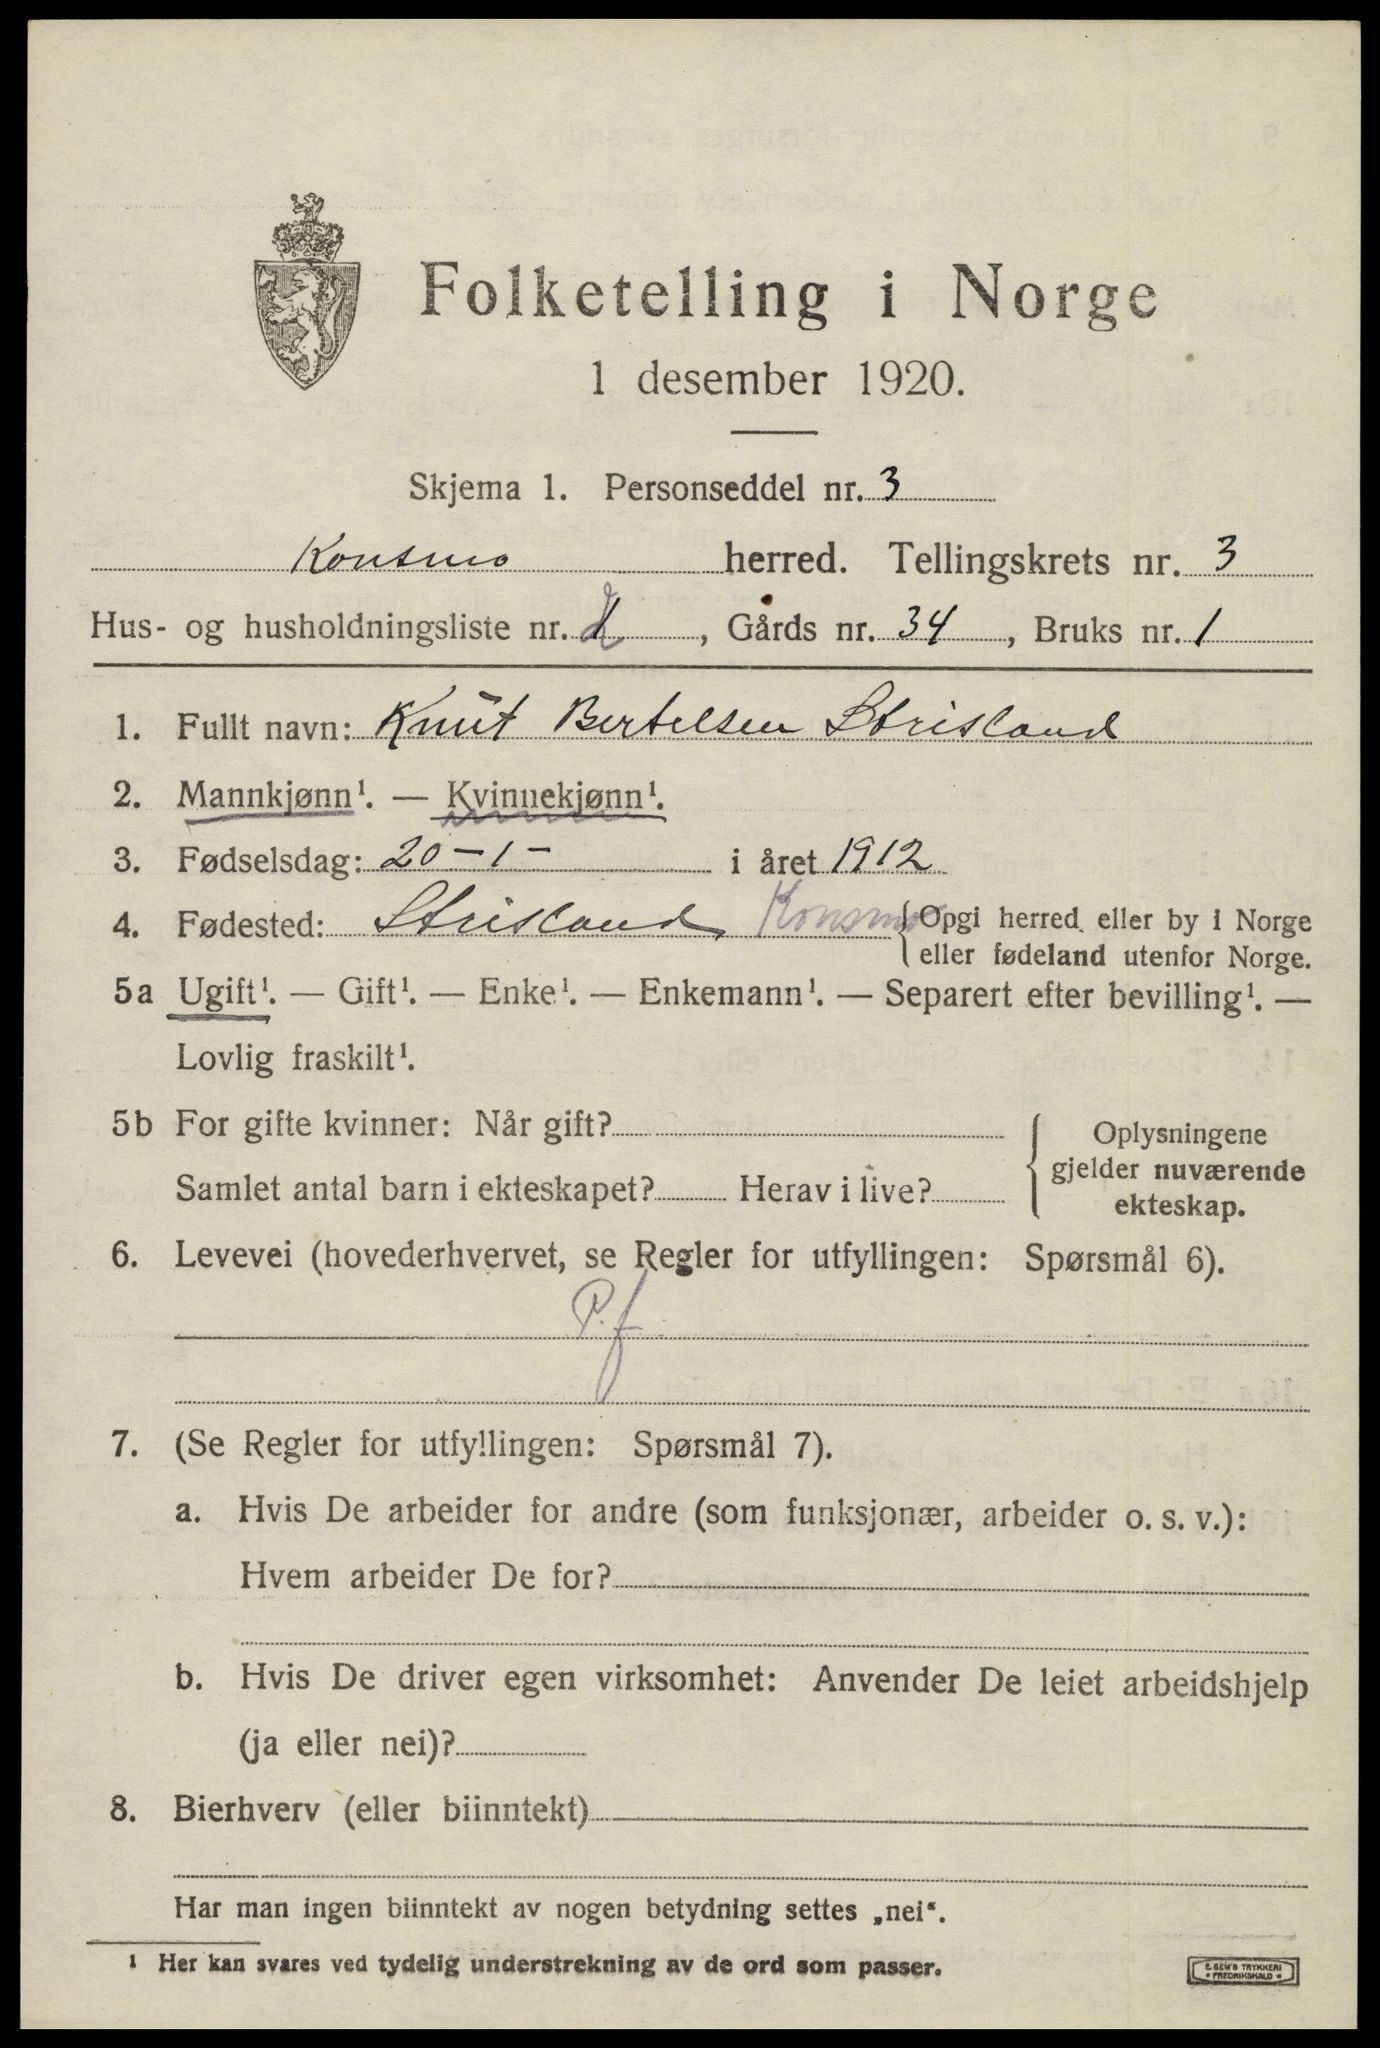 Folketelling i Norge
1 desember 1920.
Skjema 1. Personseddel nr. 3
Konsmo herred. Tellingskrets nr. 3
Hus- og husholdningsliste nr. , Gårds nr. 34 , Bruks nr. 1
1. Fullt navn: Knut Bertelsen Strisland
2. Mannkjønn¹. — Kvinnekjønn¹.
3. Fødselsdag: 20-1- i året 1912
4. Fødested: Strisland Konsmo {Opgi herred eller by i Norge
eller fødeland utenfor Norge.
5a Ugift¹. — Gift¹. — Enke¹. — Enkemann¹. — Separert efter bevilling¹. —
Lovlig fraskilt¹.
5b For gifte kvinner: Når gift?
Samlet antal barn i ekteskapet? Herav i live?
Oplysningene
gjelder nuværende
ekteskap.
6. Levevei (hovederhvervet, se Regler for utfyllingen: Spørsmål 6).
P.f
7. (Se Regler for utfyllingen: Spørsmål 7).
a. Hvis De arbeider for andre (som funksjonær, arbeider o. s. v.):
Hvem arbeider De for?
b. Hvis De driver egen virksomhet: Anvender De leiet arbeidshjelp
(ja eller nei)?
8. Bierhverv (eller biinntekt)
Har man ingen biinntekt av nogen betydning settes „nei“.
¹ Her kan svares ved tydelig understrekning av de ord som passer.
E. SEM'S TRYKKERI
• FREDRIKSHALD •